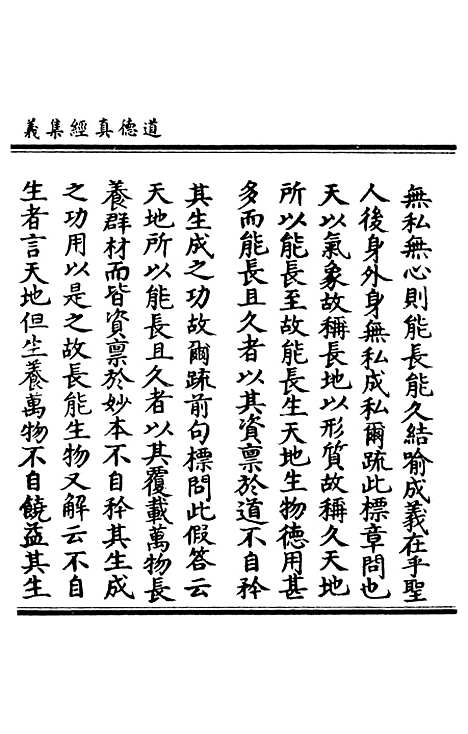 道德真經集義
無私無心則能長能久結喻成義在乎聖
人後身外身無私成私爾疏此標章問也
天以氣象故稱長地以形質故稱久天地
所以能長至故能長生天地生物德用甚
多而能長且久者以其資禀於道不自矜
其生成之功故爾疏前句標問此假答云
天地所以能長且久者以其覆載萬物長
養群材而皆資禀於妙本不自矜其生成
之功用以是之故長能生物又解云不自
生者言天地但生養萬物不自饒益其生